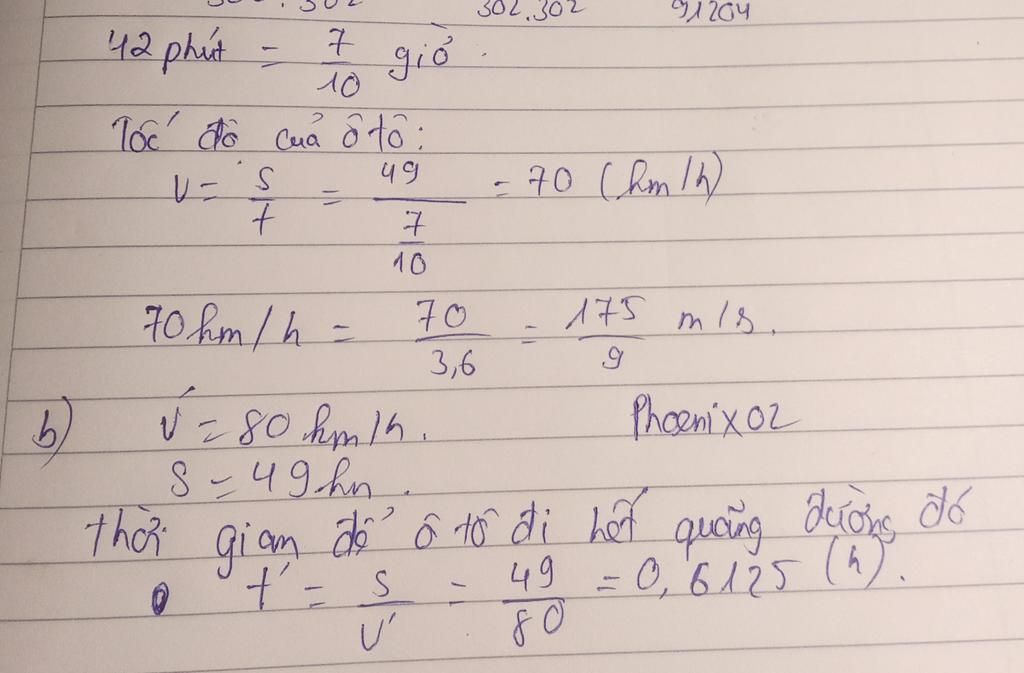 302.302 91204
42 phút = 7/10 giờ.
Tốc độ của ô tô:
v = s/t = 49/(7/10) = 70 (km/h)
70km/h = 70/3,6 = 175/9 m/s.
b) v' = 80 km/h. Phoenix02
s = 49 km.
thời gian để ô tô đi hết quãng đường đó
t' = s/v' = 49/80 = 0,6125 (h).